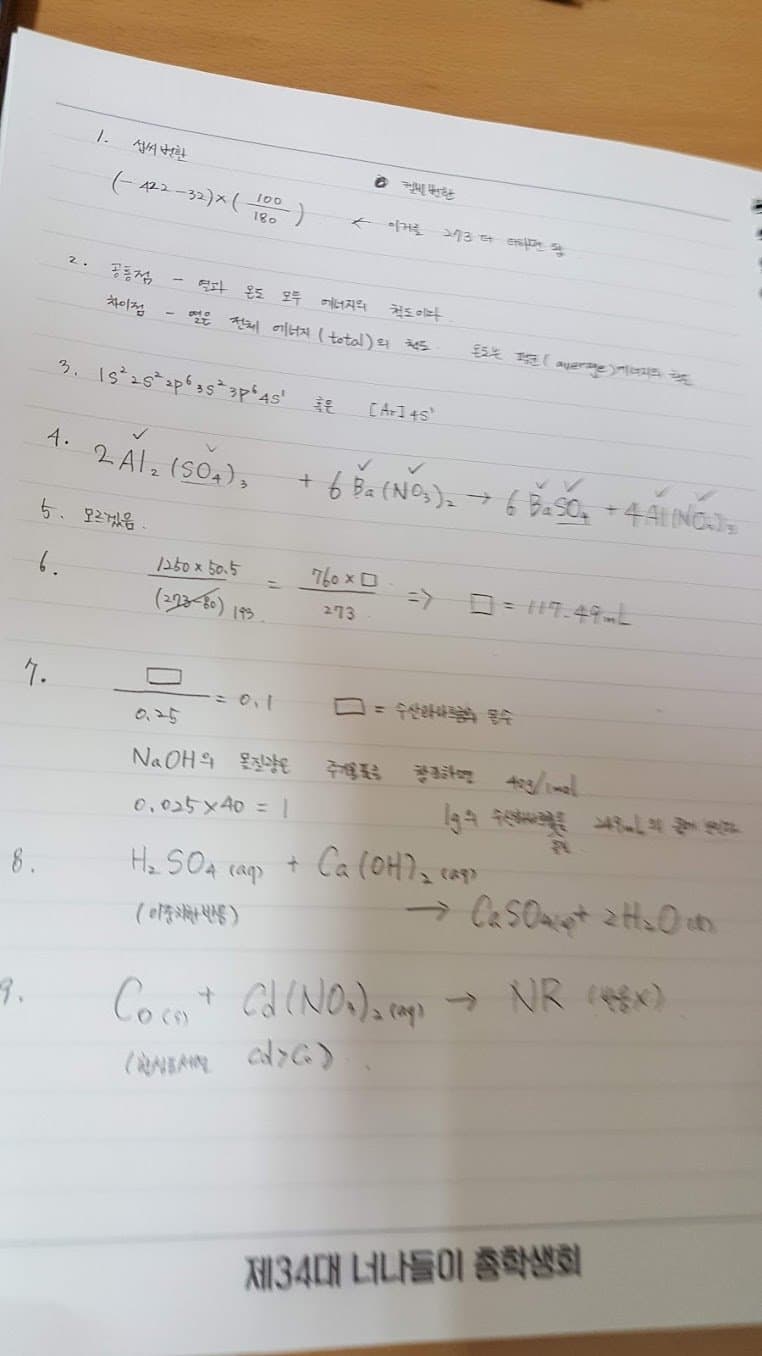 1. 섭씨변환
켈빈변환
(-422-32)×(100/180) ← 이거로 273 더 더하면 됨
2. 공통점 - 열과 온도 모두 에너지의 척도이다
차이점 - 열은 전체 에너지(total)의 척도 온도는 평균(average)에너지의 척도
3. 1s²2s²2p⁶3s²3p⁶4s¹ 혹은 [Ar]4s¹
4. 2Al₂(SO₄)₃ + 6Ba(NO₃)₂ → 6BaSO₄ + 4Al(NO₃)₃
5. 모르겠음.
6. 1250×50.5/(273-80) 193 = 760×□/273 ⇒ □ = 117.49mL
7. □/0.25 = 0.1 □ = 수산화나트륨의 몰수
NaOH의 몰질량은 주기율표를 참고하면 40g/1mol
0.025×40 = 1 1g의 수산화나트륨을 249mL의 물에
8. H₂SO₄(aq) + Ca(OH)₂(aq)
(이중치환반응) → CaSO₄ + 2H₂O
9. Co(s) + Cd(NO₃)₂(aq) → NR (반응X)
Cd>Co)
제34대 너나들이 총학생회